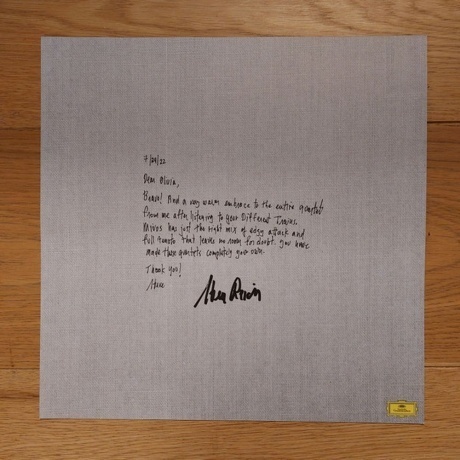 7/29/22
Dear Olivia,
Bravo! And a very warm embrace to the entire quartet
from me after listening to your Different Trains.
Mivos has just the right mix of edgy attack and
full tone that leaves no room for doubt. You have
made these quartets completely your own.
Thank you!
Steve
Steve Reich